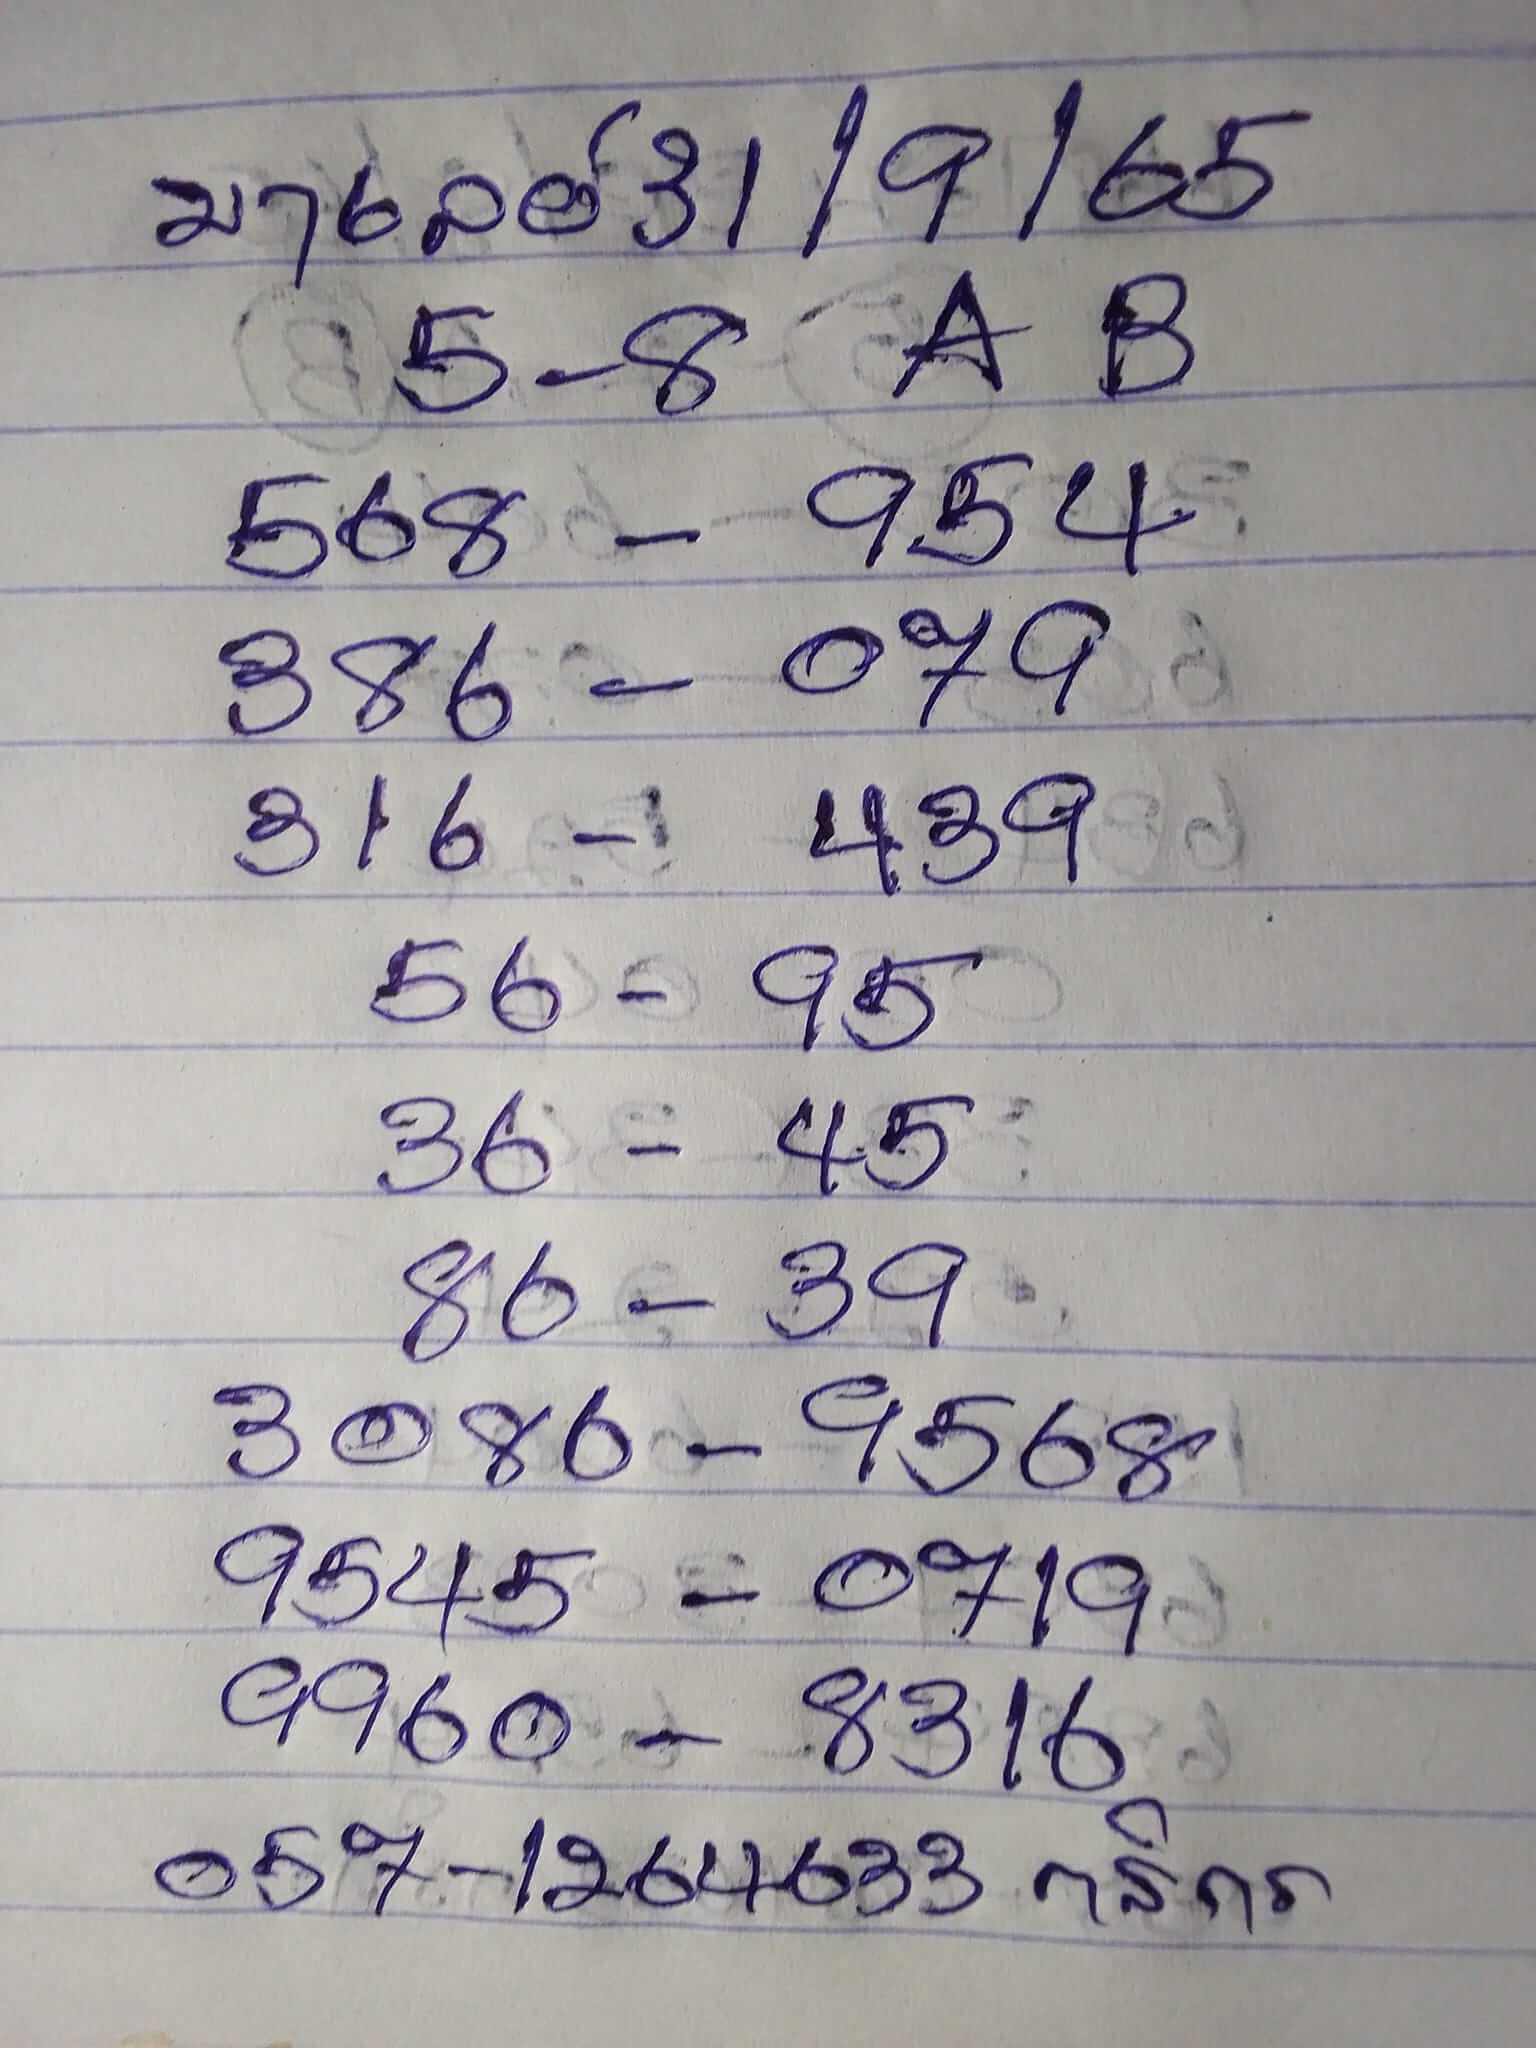 มาเลย์31/9/65
5-8 A B
568 - 954
386 - 079
316 - 439
56 - 95
36 - 45
86 - 39
3086 - 9568
9545 - 0719
9960 - 8316
057-1264633 กสิกร